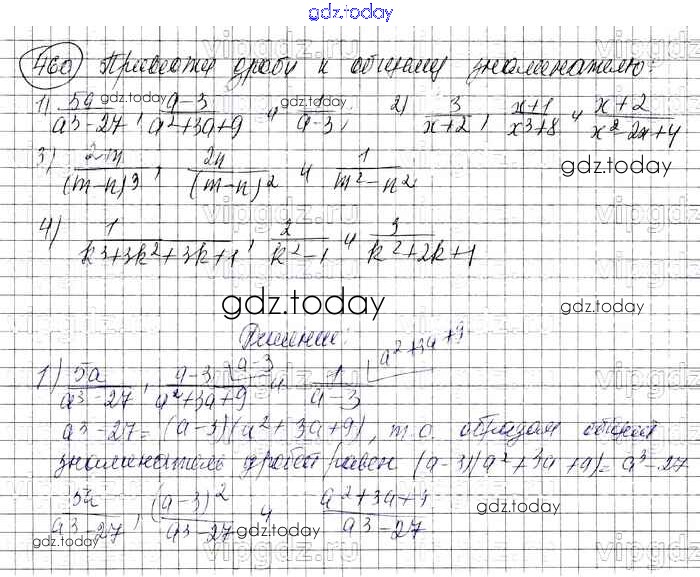 gdz.today
460 Привести дроби к общему знаменателю:
1) 5a/(a³-27), (a-3)/(a²+3a+9) и 1/(a-3); 2) 3/(x+2), (x+1)/(x³+8) и (x+2)/(x²-2x+4)
3) 2m/(m-n)³, 2n/(m-n)² и 1/(m²-n²)
4) 1/(k³+3k²+3k+1), 2/(k²-1) и 3/(k²+2k+1)
gdz.today
Решение:
1) 5a/(a³-27), (a-3)/(a²+3a+9) (a-3 и 1/(a-3) (a²+3a+9
a³-27=(a-3)(a²+3a+9), т.о. образом общий
знаменатель дробей равен (a-3)(a²+3a+9)=a³-27
5a/(a³-27), (a-3)²/(a³-27) и (a²+3a+9)/(a³-27)
gdz.today